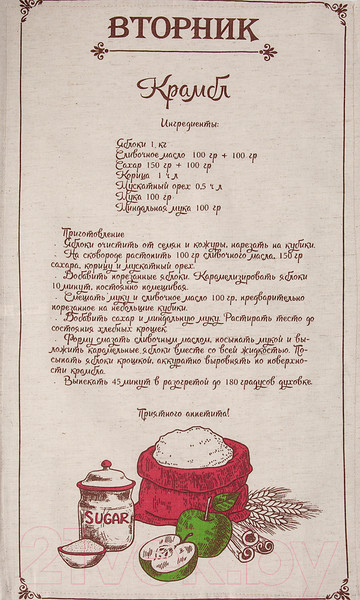 ВТОРНИК
Крамбл
Ингредиенты:
Яблоки 1 кг
Сливочное масло 100 гр + 100 гр
Сахар 150 гр + 100 гр
Корица 1 ч л
Мускатный орех 0,5 ч л
Мука 100 гр
Миндальная мука 100 гр
Приготовление
Яблоки очистить от семян и кожуры, нарезать на кубики.
На сковороде растопить 100 гр сливочного масла, 150 гр
сахара, корицу и мускатный орех.
Добавить порезанные яблоки. Карамелизировать яблоки
10 минут, постоянно помешивая.
Смешать муку и сливочное масло 100 гр, предварительно
порезанное на небольшие кубики.
Добавить сахар и миндальную муку. Растирать тесто до
состояния хлебных крошек.
Форму смазать сливочным маслом, посыпать мукой и вы-
ложить карамельные яблоки вместе со всей жидкостью. По-
сыпать яблоки крошкой, аккуратно выровнять по поверхно-
сти крамбла.
Выпекать 45 минут в разогретой до 180 градусов духовке.
Приятного аппетита!
SUGAR
21vek.by